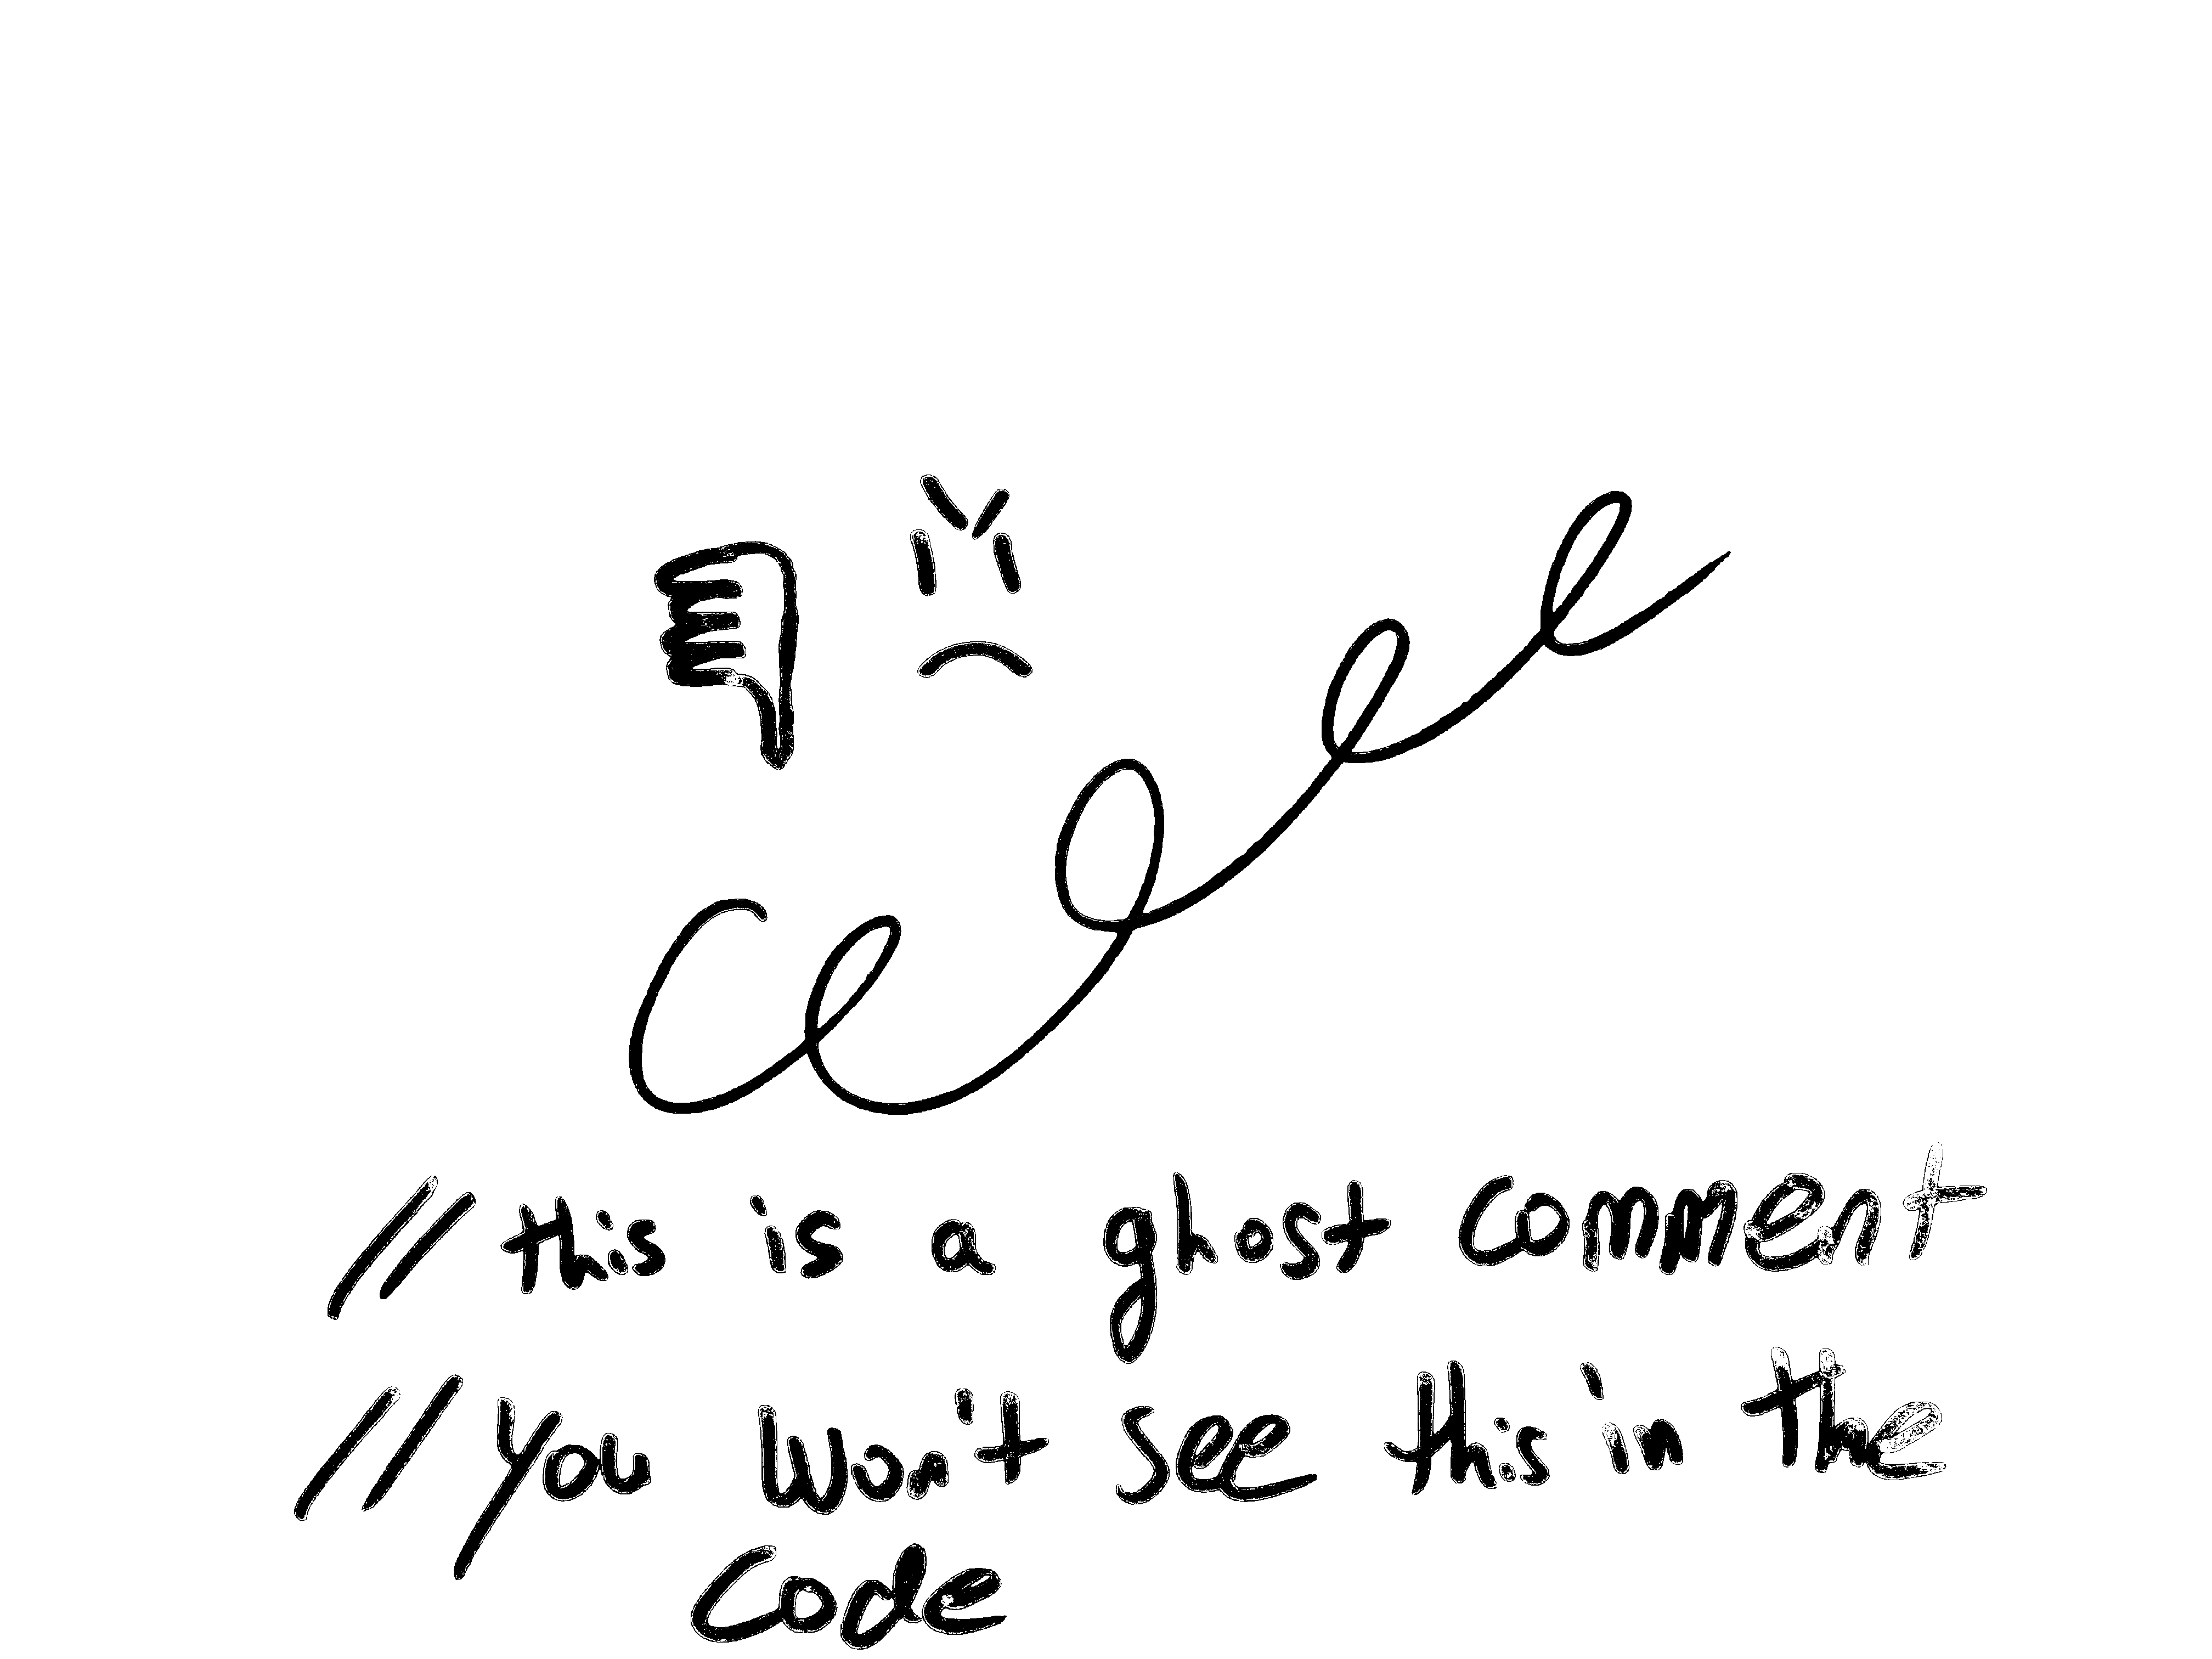 // this is a ghost comment
// you won't see this in the
code